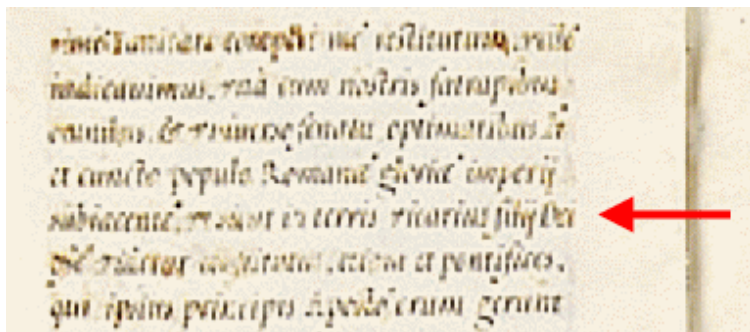 sanitati me restitutum, vtile
iudicauimus, vna cum nostris satrapibus
omnibus, & vniuerso senatu, optimatibus
et cuncto populo Romane glorie imperij
subiacente, vt sicut in terris vicarius filij Dei
videtur constitutus, etiam et pontifices,
qui ipsius principis gerunt